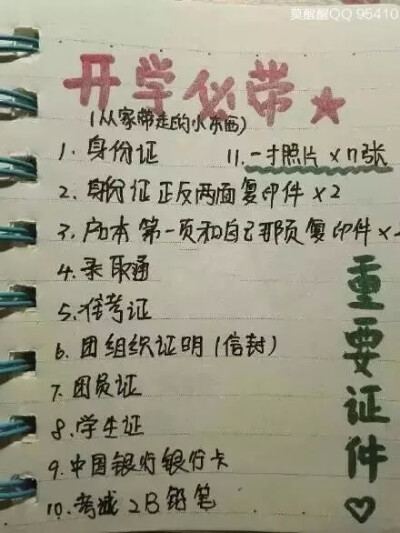 莫酸酸QQ 95410
开学必带
(从家带走的小东西)
1. 身份证
11. 一寸照片 ×n张
2. 身份证正反两面复印件×2
3. 户本第一页和自己那页复印件×2
4. 录取通
5. 准考证
6. 团组织证明(信封)
7. 团员证
8. 学生证
9. 中国银行银行卡
10. 考试2B铅笔
重要证件